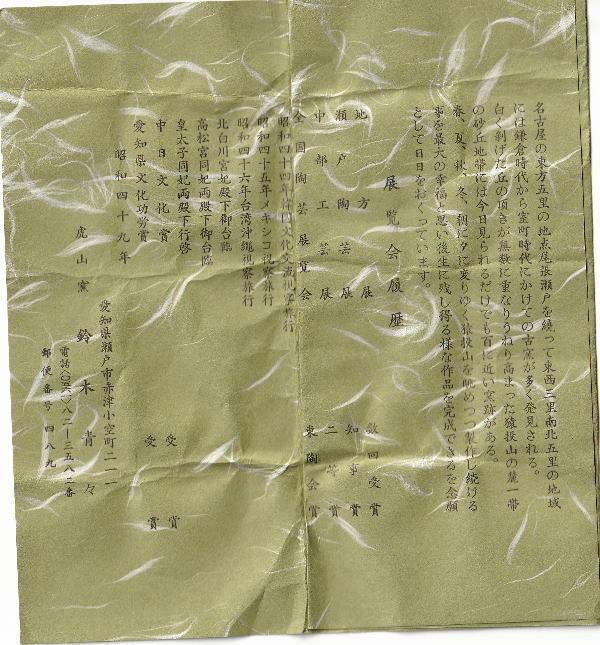 名古屋の東方五里の地点尾張瀬戸を繞って東西三里南北五里の地域
には鎌倉時代から室町時代にかけての古窯が多く発見される。
白く剥げた丘の頂きが無数に重なりうねり高まった猿投山の麓一帯
の砂丘地帯には今日見られるだけでも百に近い窯跡がある。
春、夏、秋、冬、朝に夕に変りゆく猿投山を眺めつつ製作し続ける
事を最大の幸福と思い後生に残し得る様な作品を完成できるを念願
として日日をおくっています。
展覧会履歴
地方展 数回受賞
瀬戸陶芸展 知事賞
中部工芸展 二等賞
全国陶芸展覧会 東陶会賞
昭和四十四年 文化交流視察旅行
昭和四十五年メキシコ視察旅行
昭和四十六年台湾沖縄視察旅行
北白川宮妃殿下御台臨
高松宮同妃両殿下御台臨
皇太子同妃両殿下行啓
中日文化賞 受賞
愛知県文化功労賞 受賞
昭和四十九年
愛知県瀬戸市赤津小空町二一一
虎山窯 鈴木青々
電話〈〇五六一〉八二―三五八二番
郵便番号 四八九